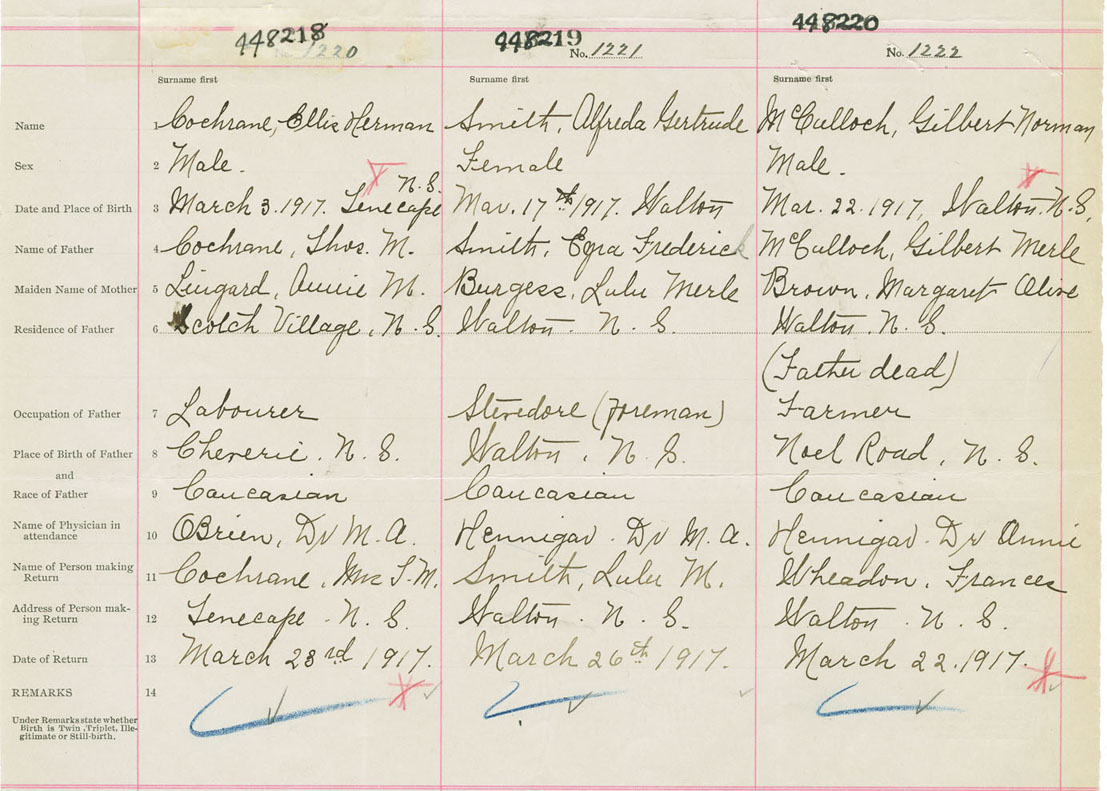 448218 448219 448220
1220 No. 1221 No. 1222
Surname first Surname first Surname first
Name 1 Cochrane, Ellis Herman Smith, Alfreda Gertrude McCulloch, Gilbert Norman
Sex 2 Male. Female Male.
N.S.
Date and Place of Birth 3 March 3. 1917. Tenecape Mar. 17th 1917. Walton Mar. 22. 1917, Walton. N.S.
Name of Father 4 Cochrane, Thos. M. Smith, Ezra Frederick McCulloch, Gilbert Merle
Maiden Name of Mother 5 Lingard, Annie M. Burgess, Lulu Merle Brown, Margaret Olive
Residence of Father 6 Scotch Village, N.S. Walton. N. S. Walton. N. S.
(Father dead)
Occupation of Father 7 Labourer Stevedore (foreman) Farmer
Place of Birth of Father 8 Cheverie. N. S. Walton, N. S. Noel Road, N. S.
and
Race of Father 9 Caucasian Caucasian Caucasian
Name of Physician in
attendance 10 OBrien, Dr M. A. Hennigar. Dr M. A. Hennigar. Dr Annie
Name of Person making
Return 11 Cochrane, Mrs T. M. Smith, Lulu M. Wheadon, Frances
Address of Person mak-
ing Return 12 Tenecape. N. S. Walton. N. S. Walton. N. S.
Date of Return 13 March 23rd 1917. March 26th 1917. March 22. 1917.
REMARKS 14
Under Remarks state whether
Birth is Twin, Triplet, Ille-
gitimate or Still-birth.